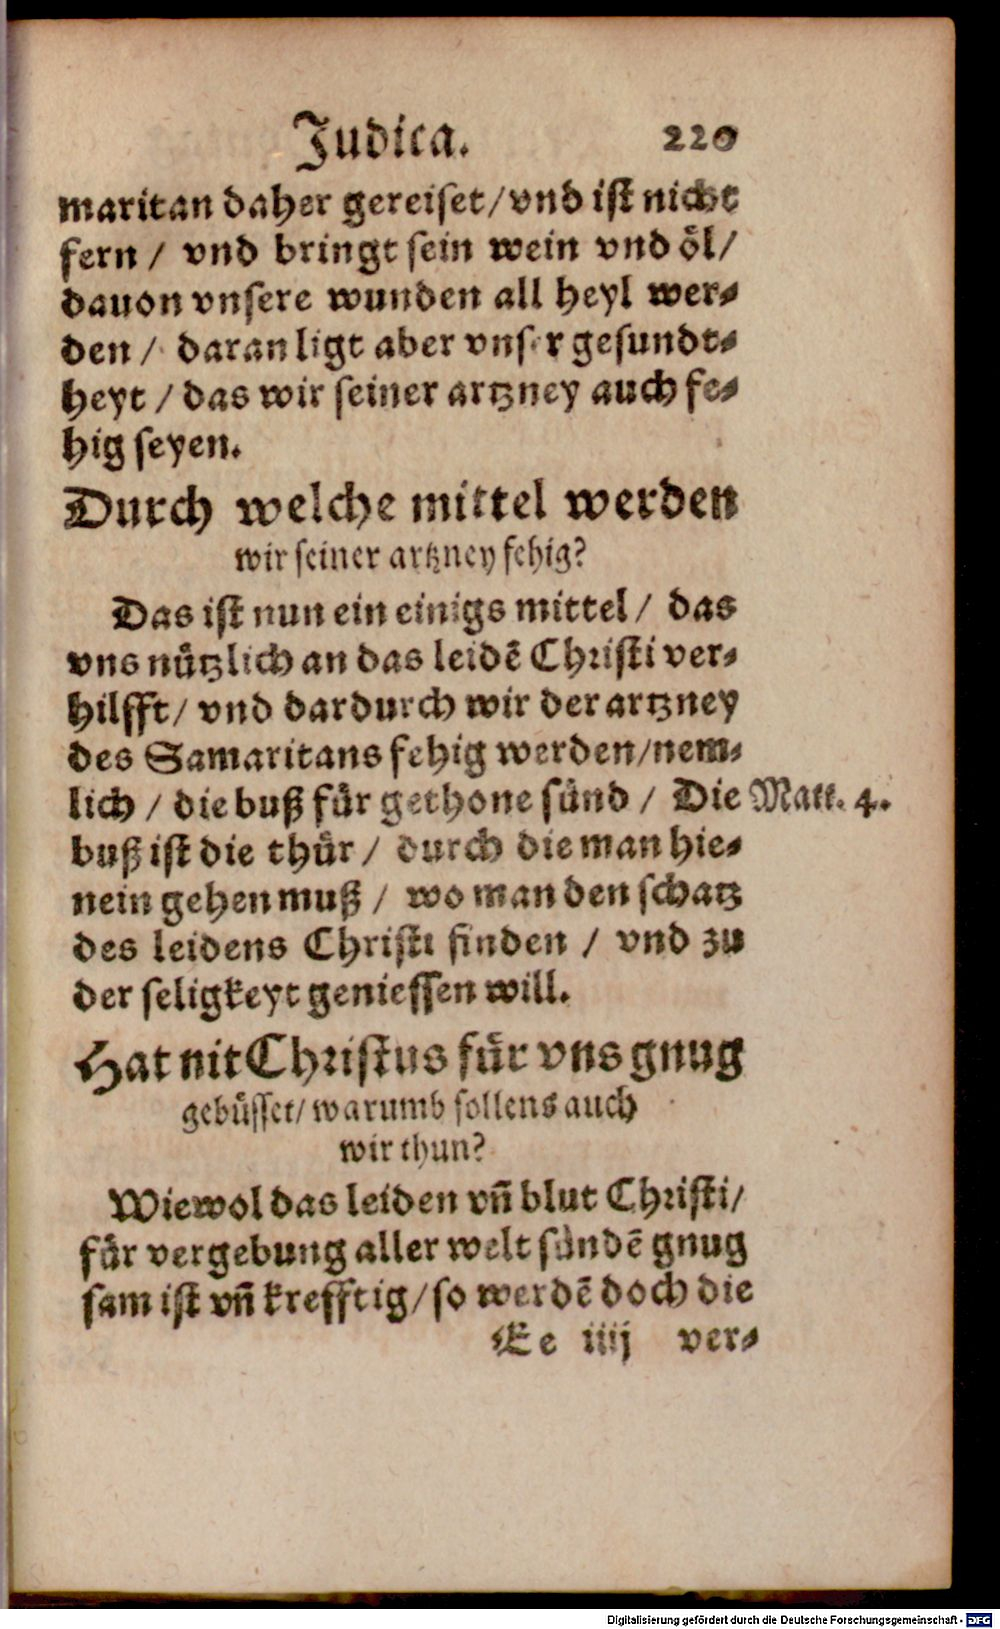 Judica. 220
maritan daher gereiset/vnd ist nicht
fern / vnd bringt sein wein vnd öl/
dauon vnsere wunden all heyl wer⸗
den / daran ligt aber vnser gesundt⸗
heyt / das wir seiner artzney auch fe⸗
hig seyen.
Durch welche mittel werden
wir seiner artzney fehig?
Das ist nun ein einigs mittel / das
vns nützlich an das leidẽ Christi ver⸗
hilfft/ vnd dardurch wir der artzney
des Samaritans fehig werden/nem⸗
lich / die buß für gethone sünd / Die Matt. 4.
buß ist die thür / durch die man hie⸗
nein gehen muß / wo man den schatz
des leidens Christi finden / vnd zu
der seligkeyt geniessen will.
Hat nit Christus für vns gnug
gebüsset/ warumb sollens auch
wir thun?
Wiewol das leiden vñ blut Christi/
für vergebung aller welt sündẽ gnug
sam ist vñ krefftig/so werdẽ doch die
Ee iiij ver⸗
Digitalisierung gefördert durch die Deutsche Forschungsgemeinschaft - DFG